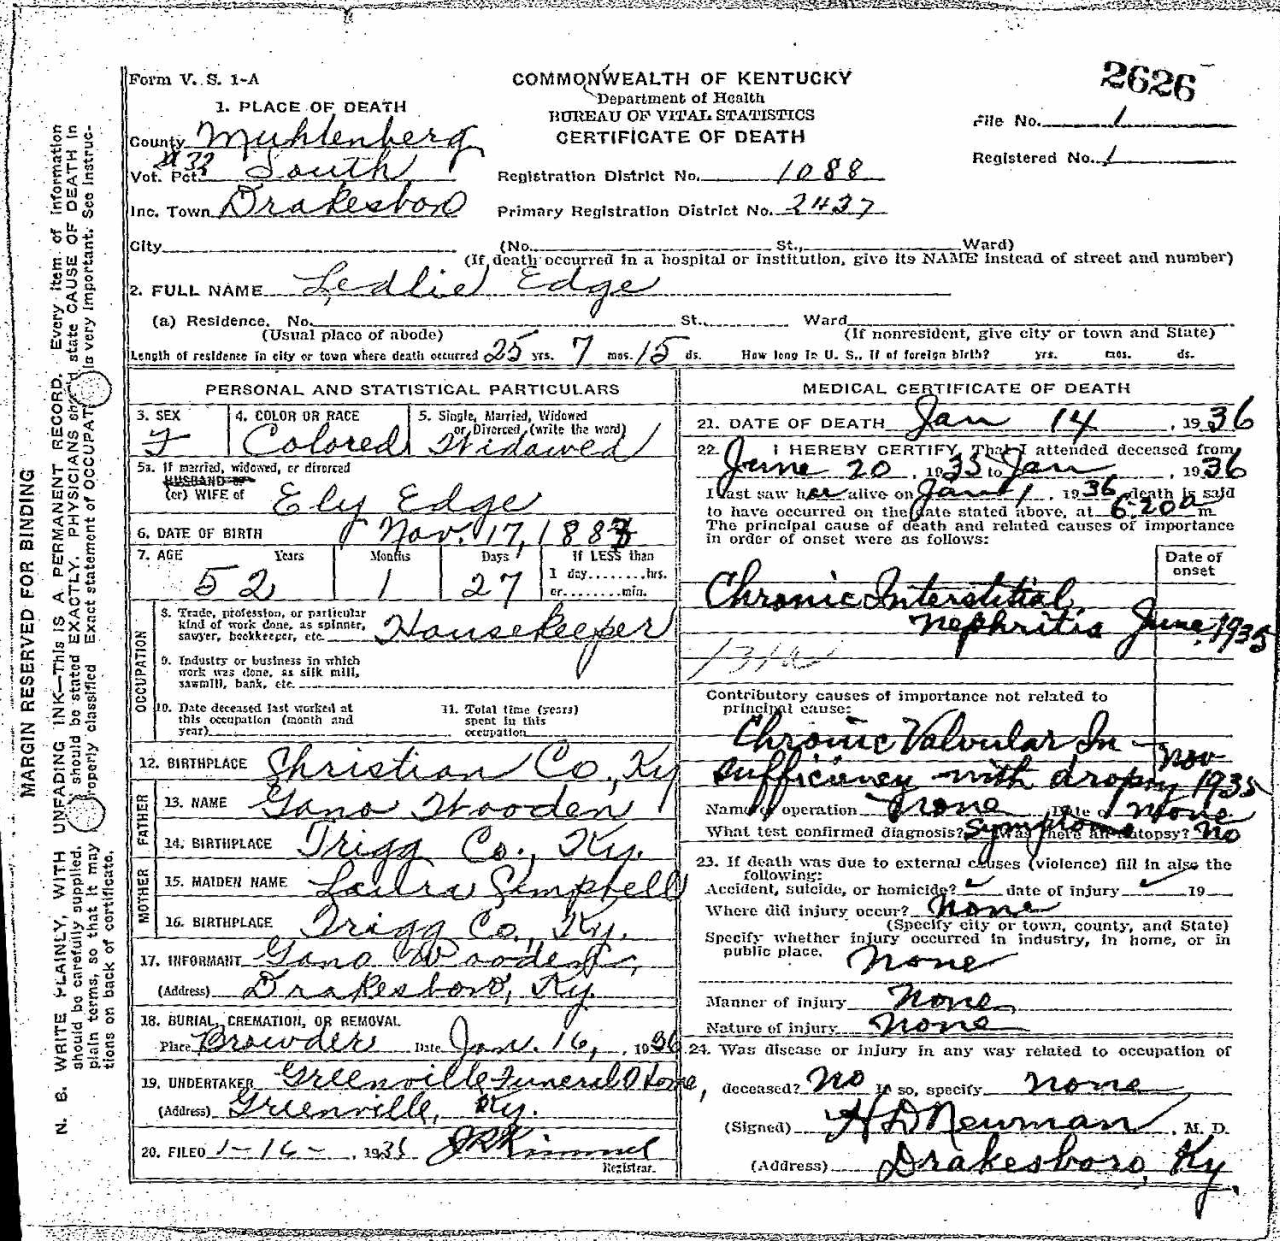 2626
Form V. S. 1-A
COMMONWEALTH OF KENTUCKY
Department of Health
BUREAU OF VITAL STATISTICS
CERTIFICATE OF DEATH
File No. 1
Registered No. 1
1. PLACE OF DEATH
County Muhlenberg
Vot. Pct. South
Inc. Town Drakesboro
Registration District No. 1088
Primary Registration District No. 2437
City (No. St., Ward)
(If death occurred in a hospital or institution, give its NAME instead of street and number)
2. FULL NAME Ledlie Edge
(a) Residence. No. St., Ward
(Usual place of abode) (If nonresident, give city or town and State)
Length of residence in city or town where death occurred 25 yrs. 7 mos. 15 ds. How long in U. S., if of foreign birth? yrs. mos. ds.
PERSONAL AND STATISTICAL PARTICULARS
3. SEX F
4. COLOR OR RACE Colored
5. Single, Married, Widowed or Divorced (write the word) Widowed
5a. If married, widowed, or divorced
HUSBAND of
(or) WIFE of Ely Edge
6. DATE OF BIRTH Nov. 17, 1883
7. AGE Years Months Days If LESS than
52 1 27 1 day........hrs.
or........min.
OCCUPATION
8. Trade, profession, or particular
kind of work done, as spinner,
sawyer, bookkeeper, etc. Housekeeper
9. Industry or business in which
work was done, as silk mill,
sawmill, bank, etc.
10. Date deceased last worked at
this occupation (month and
year)
11. Total time (years)
spent in this
occupation
12. BIRTHPLACE Christian Co., Ky
FATHER
13. NAME Gano Wooden
14. BIRTHPLACE Trigg Co., Ky.
MOTHER
15. MAIDEN NAME Laura
16. BIRTHPLACE Trigg Co., Ky.
17. INFORMANT Gano Wooden,
(Address) Drakesboro, Ky.
18. BURIAL, CREMATION, OR REMOVAL
Place Browder Date Jan. 16, 1936
19. UNDERTAKER Greenville Funeral Home,
(Address) Greenville, Ky.
20. FILED 1-16-, 193 Kimmel
Registrar.
MEDICAL CERTIFICATE OF DEATH
21. DATE OF DEATH Jan 14, 1936
22. I HEREBY CERTIFY, That I attended deceased from
June 20, 1935 to Jan, 1936
I last saw her alive on Jan 1, 1936, death is said
to have occurred on the date stated above, at 6:20 a m.
The principal cause of death and related causes of importance
in order of onset were as follows:
Date of
onset
Chronic Interstitial
nephritis June 1935
Contributory causes of importance not related to
principal cause:
Chronic Valvular In-
sufficiency with dropsy Nov 1935
Name of operation None Date of None
What test confirmed diagnosis? Symptoms Was there an autopsy? No
23. If death was due to external causes (violence) fill in also the
following:
Accident, suicide, or homicide? date of injury 19
Where did injury occur? None
(Specify city or town, county, and State)
Specify whether injury occurred in industry, in home, or in
public place. None
Manner of injury None
Nature of injury None
24. Was disease or injury in any way related to occupation of
deceased? No If so, specify none
(Signed) H D Newman, M. D.
(Address) Drakesboro, Ky.
MARGIN RESERVED FOR BINDING
N. B. WRITE PLAINLY, WITH UNFADING INK—This IS A PERMANENT RECORD. Every item of information
should be carefully supplied. should be stated EXACTLY. PHYSICIANS should state CAUSE OF DEATH in
plain terms, so that it may properly classified Exact statement of OCCUPAT is very important. See instruc-
tions on back of certificate.